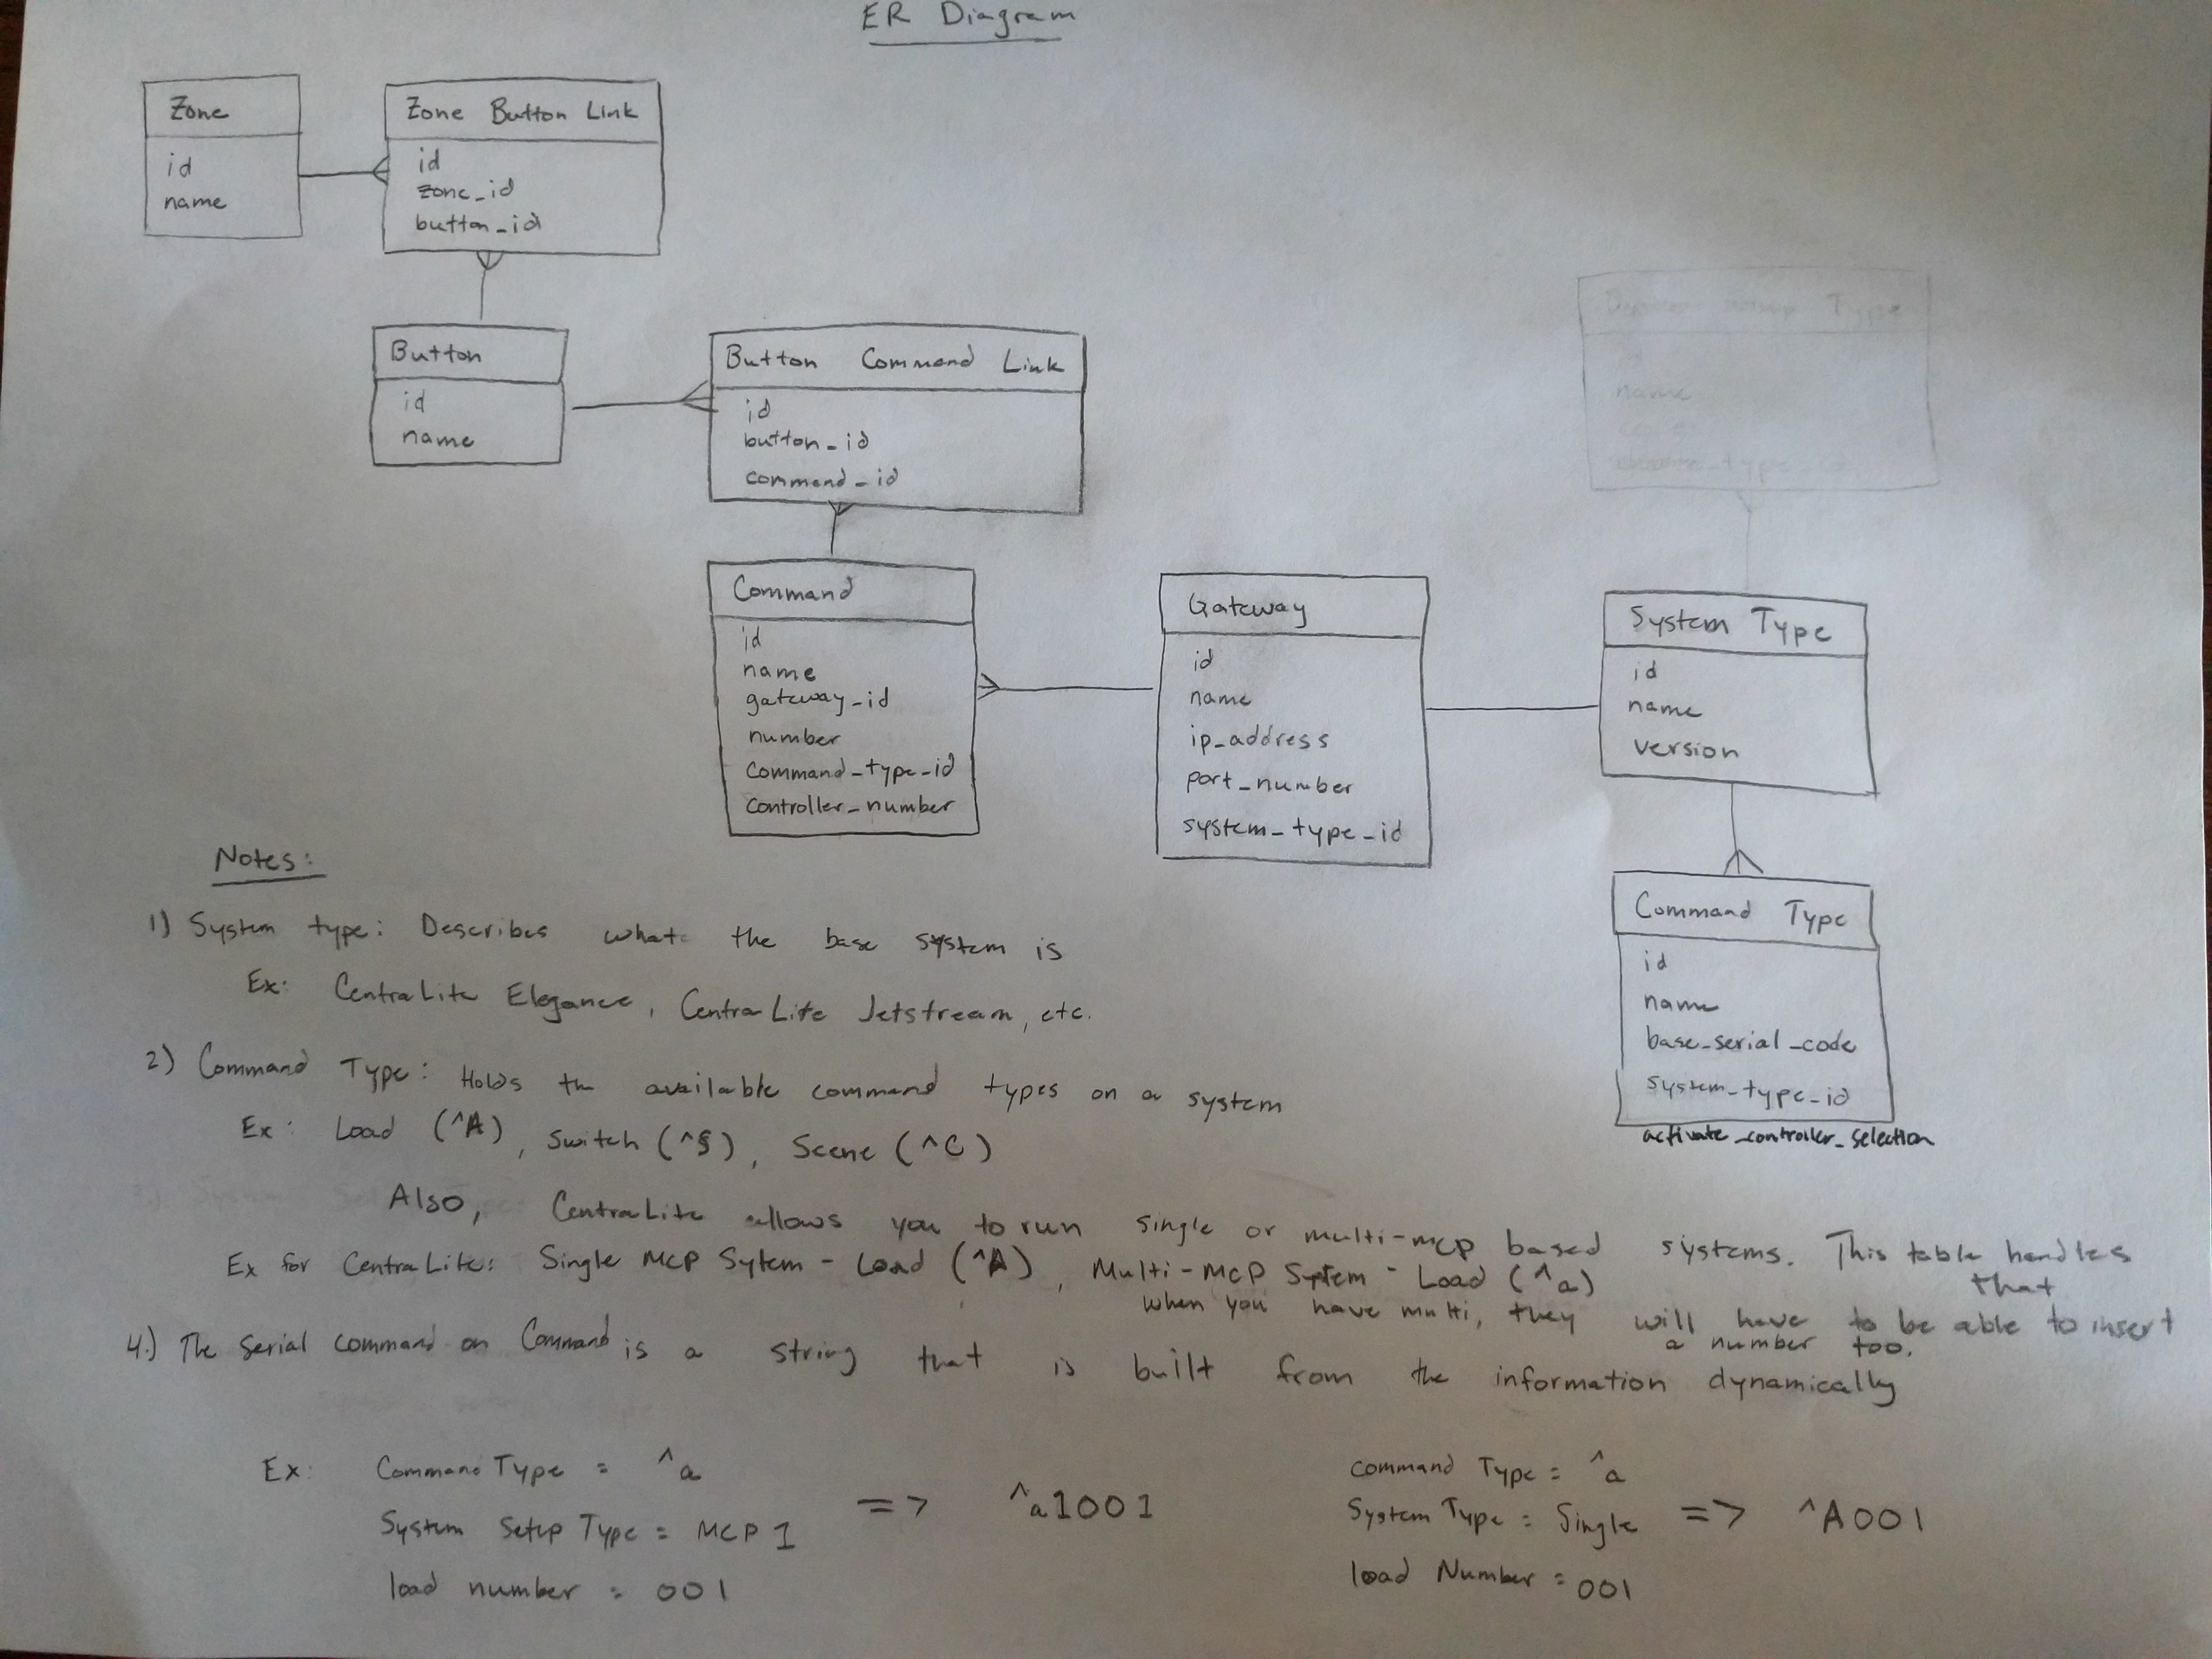 ER Diagram
Zone
id
name
Zone Button Link
id
zone_id
button_id
Button
id
name
Button Command Link
id
button_id
command_id
Type
name
Command
id
name
gateway_id
number
command_type_id
controller_number
Gateway
id
name
ip_address
port_number
system_type_id
System Type
id
name
version
Command Type
id
name
base_serial_code
system_type_id
activate_controller_selection
Notes:
1) System type: Describes what the base system is
Ex: CentraLite Elegance, CentraLite Jetstream, etc.
2) Command Type: Holds the available command types on a system
Ex: Load (^A), Switch (^§), Scene (^C)
Also, CentraLite allows you to run single or multi-mcp based systems. This table handles that
Ex for CentraLite: Single MCP Sytem - Load (^A), Multi-MCP System - Load (^a)
when you have multi, they will have to be able to insert a number too.
4.) The serial command on Command is a string that is built from the information dynamically
Ex: Command Type = ^a
System Setup Type = MCP 1 => ^a1001
load number = 001
Command Type = ^a
System Type = Single => ^A001
load Number = 001